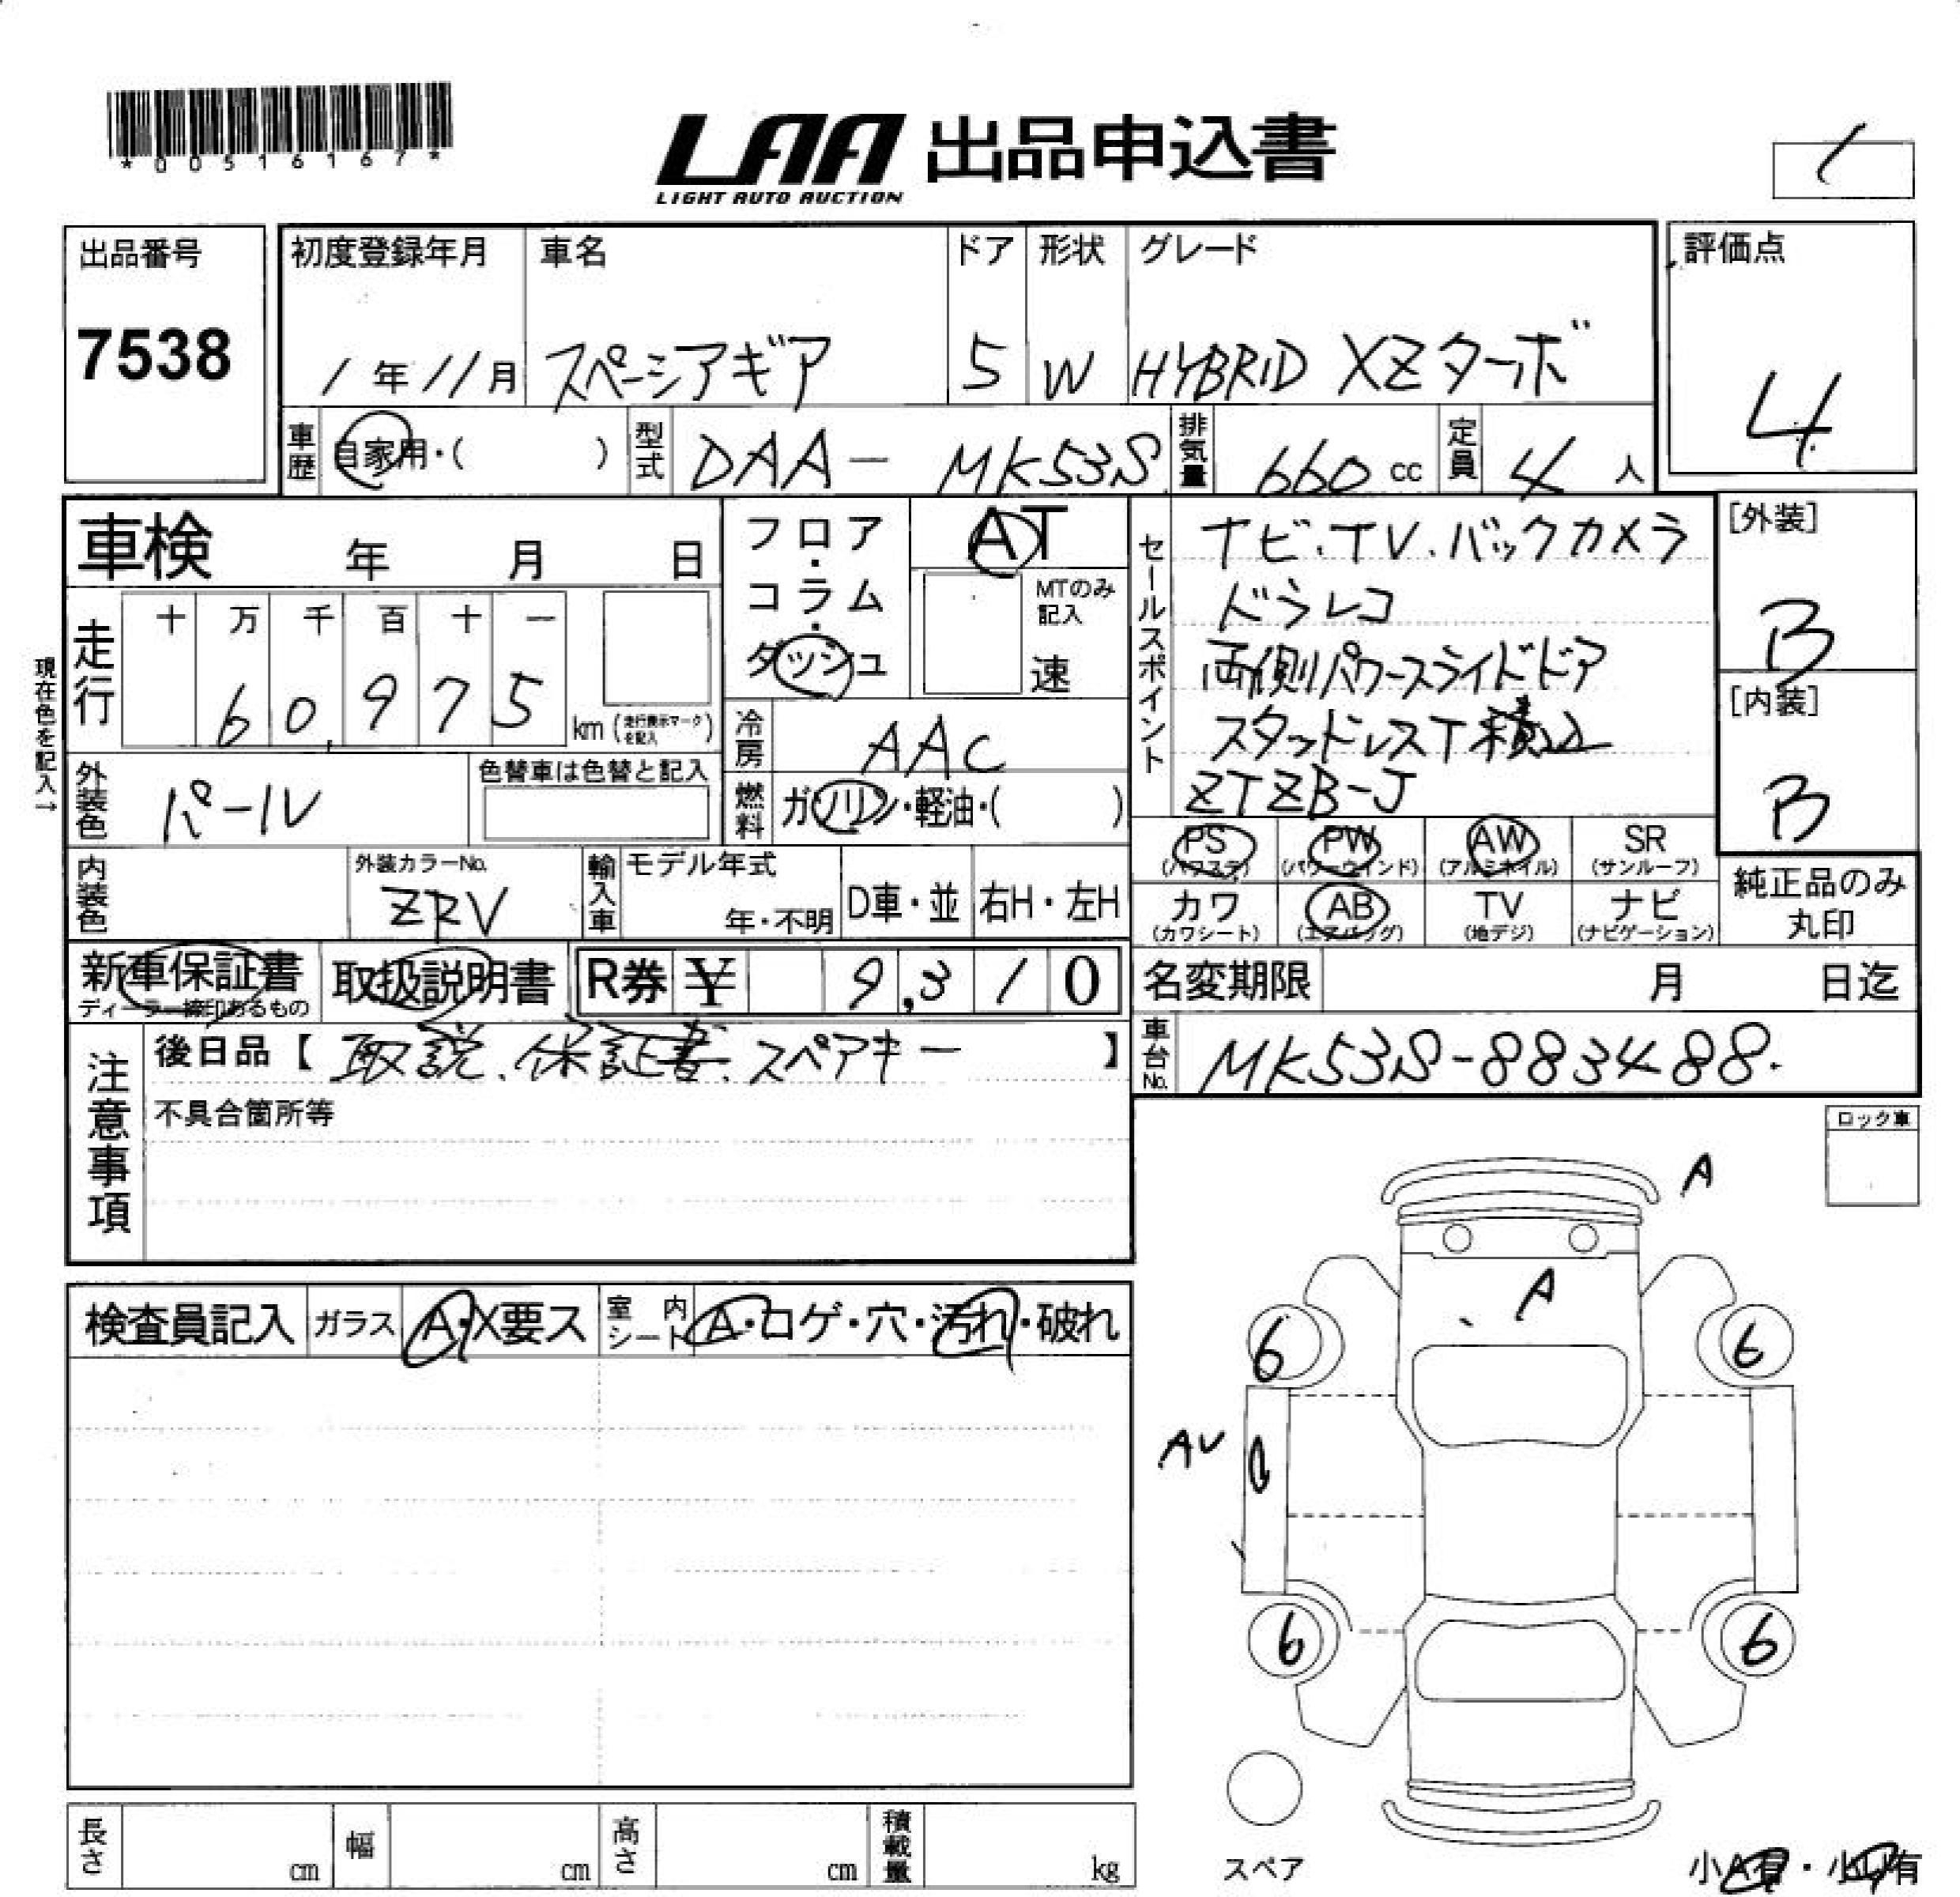 *00516167*
LAA 出品申込書
LIGHT AUTO AUCTION
出品番号
7538
初度登録年月
1年11月
車名
スペーシアギア
ドア
5
形状
W
グレード
HYBRID XZターボ
評価点
4
車歴
自家用・( )
型式
DAA- MK53S
排気量
660 cc
定員
4 人
車検 年 月 日
現在色を記入→
走行
十 万 千 百 十 一
60,975
km(走行表示マークを記入)
フロア・コラム・ダッシュ
AT
MTのみ記入
速
冷房
AAC
燃料
ガソリン・軽油・( )
外装色
パール
色替車は色替と記入
内装色
外装カラーNo.
ZRV
輸入車
モデル年式
年・不明
D車・並
右H・左H
セールスポイント
ナビ.TV.バックカメラ
ドラレコ
両側パワースライドドア
スタッドレスT積込
ZTZB-J
[外装]
B
[内装]
B
PS PW AW SR
(パワステ) (パワーウィンド) (アルミホイル) (サンルーフ)
カワ AB TV ナビ
(カワシート) (エアバッグ) (地デジ) (ナビゲーション)
純正品のみ
丸印
新車保証書
ディーラー締印あるもの
取扱説明書
R券 ¥ 9,310
名変期限 月 日迄
注意事項
後日品【取説.保証書.スペアキー】
不具合箇所等
車台No.
MK53S-883488.
ロック車
検査員記入
ガラス
A・X要ス
室内シート
A・コゲ・穴・汚れ・破れ
A
A
6 6
AU
6 6
スペア
小A有・小U有
長さ cm
幅 cm
高さ cm
積載量 kg